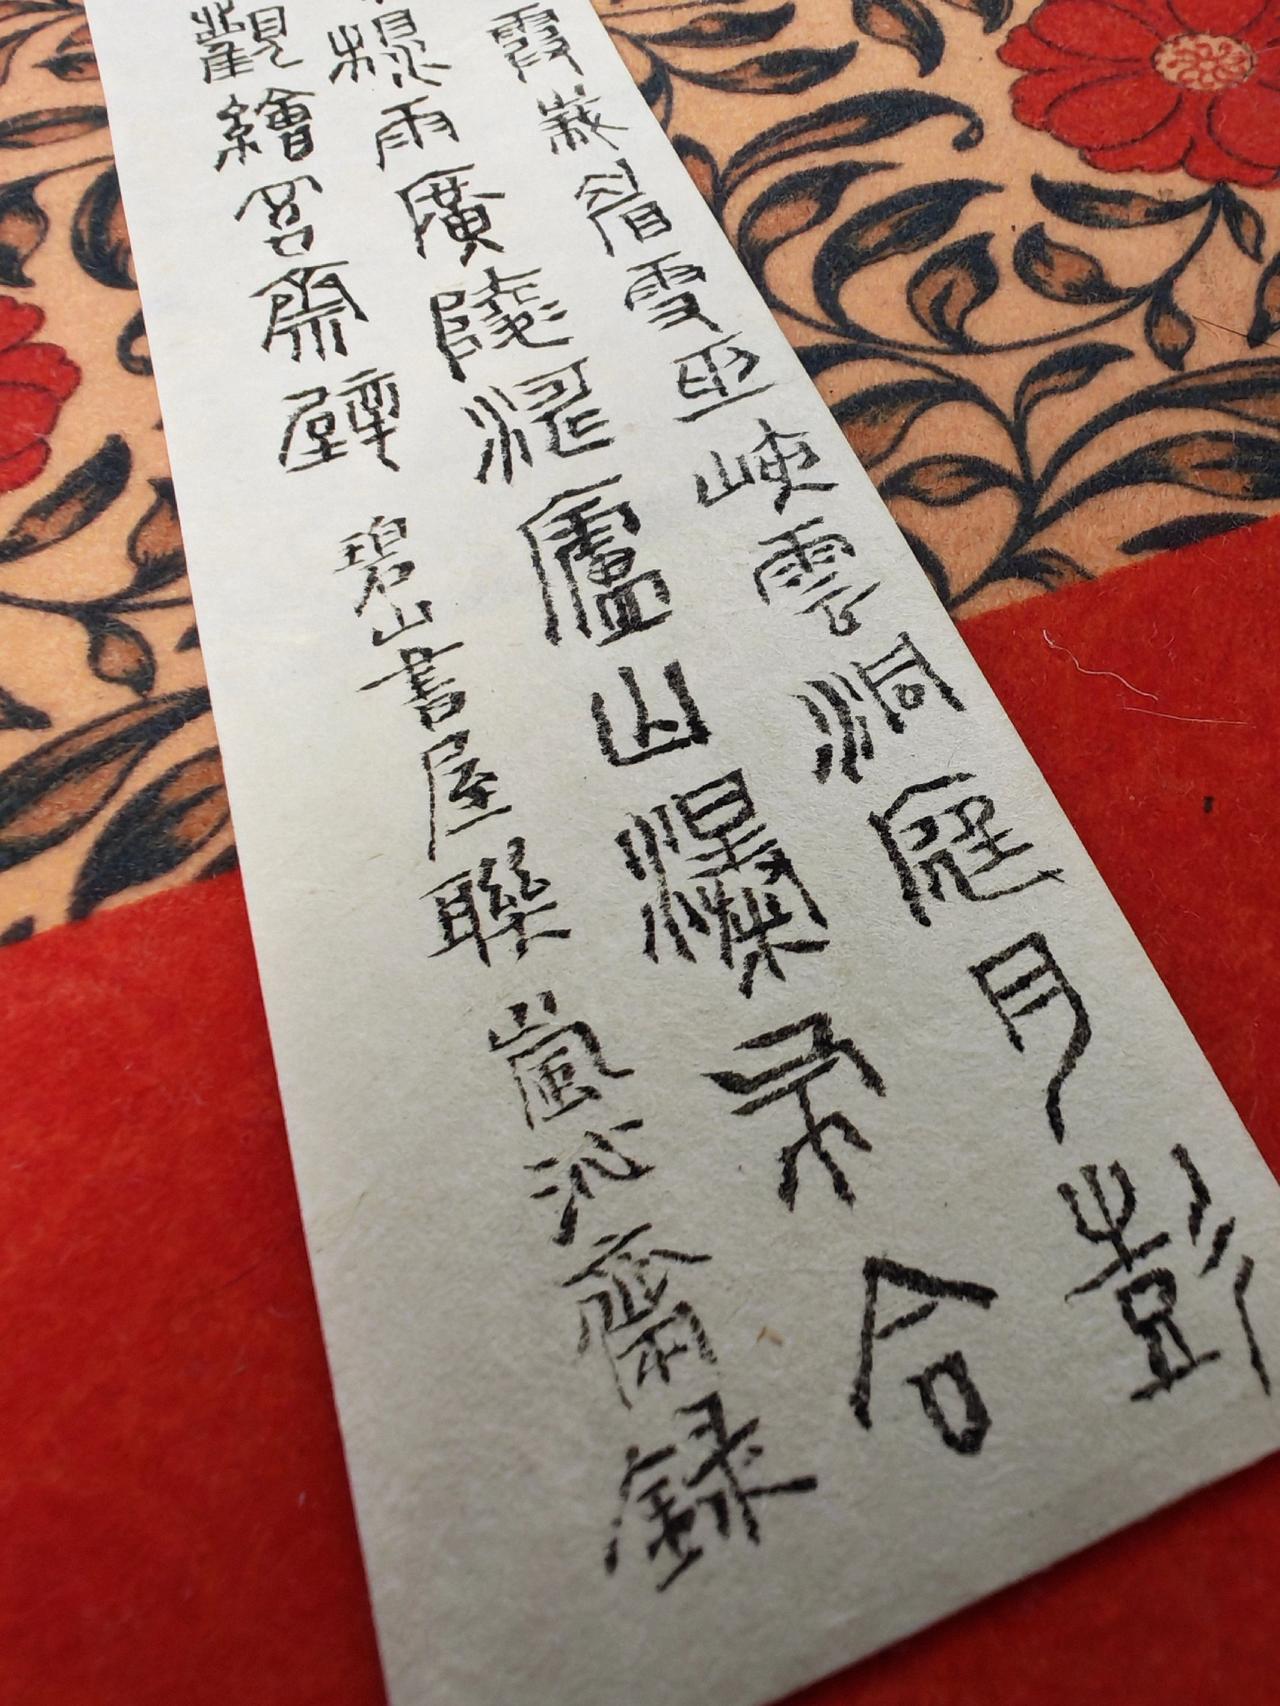 霞峩眉雪巫峽雲洞庭月彭
湘雨廣陵濤廬山瀑布合
觀繪吾齋壁 碧山書屋聯 嵐沁齋録